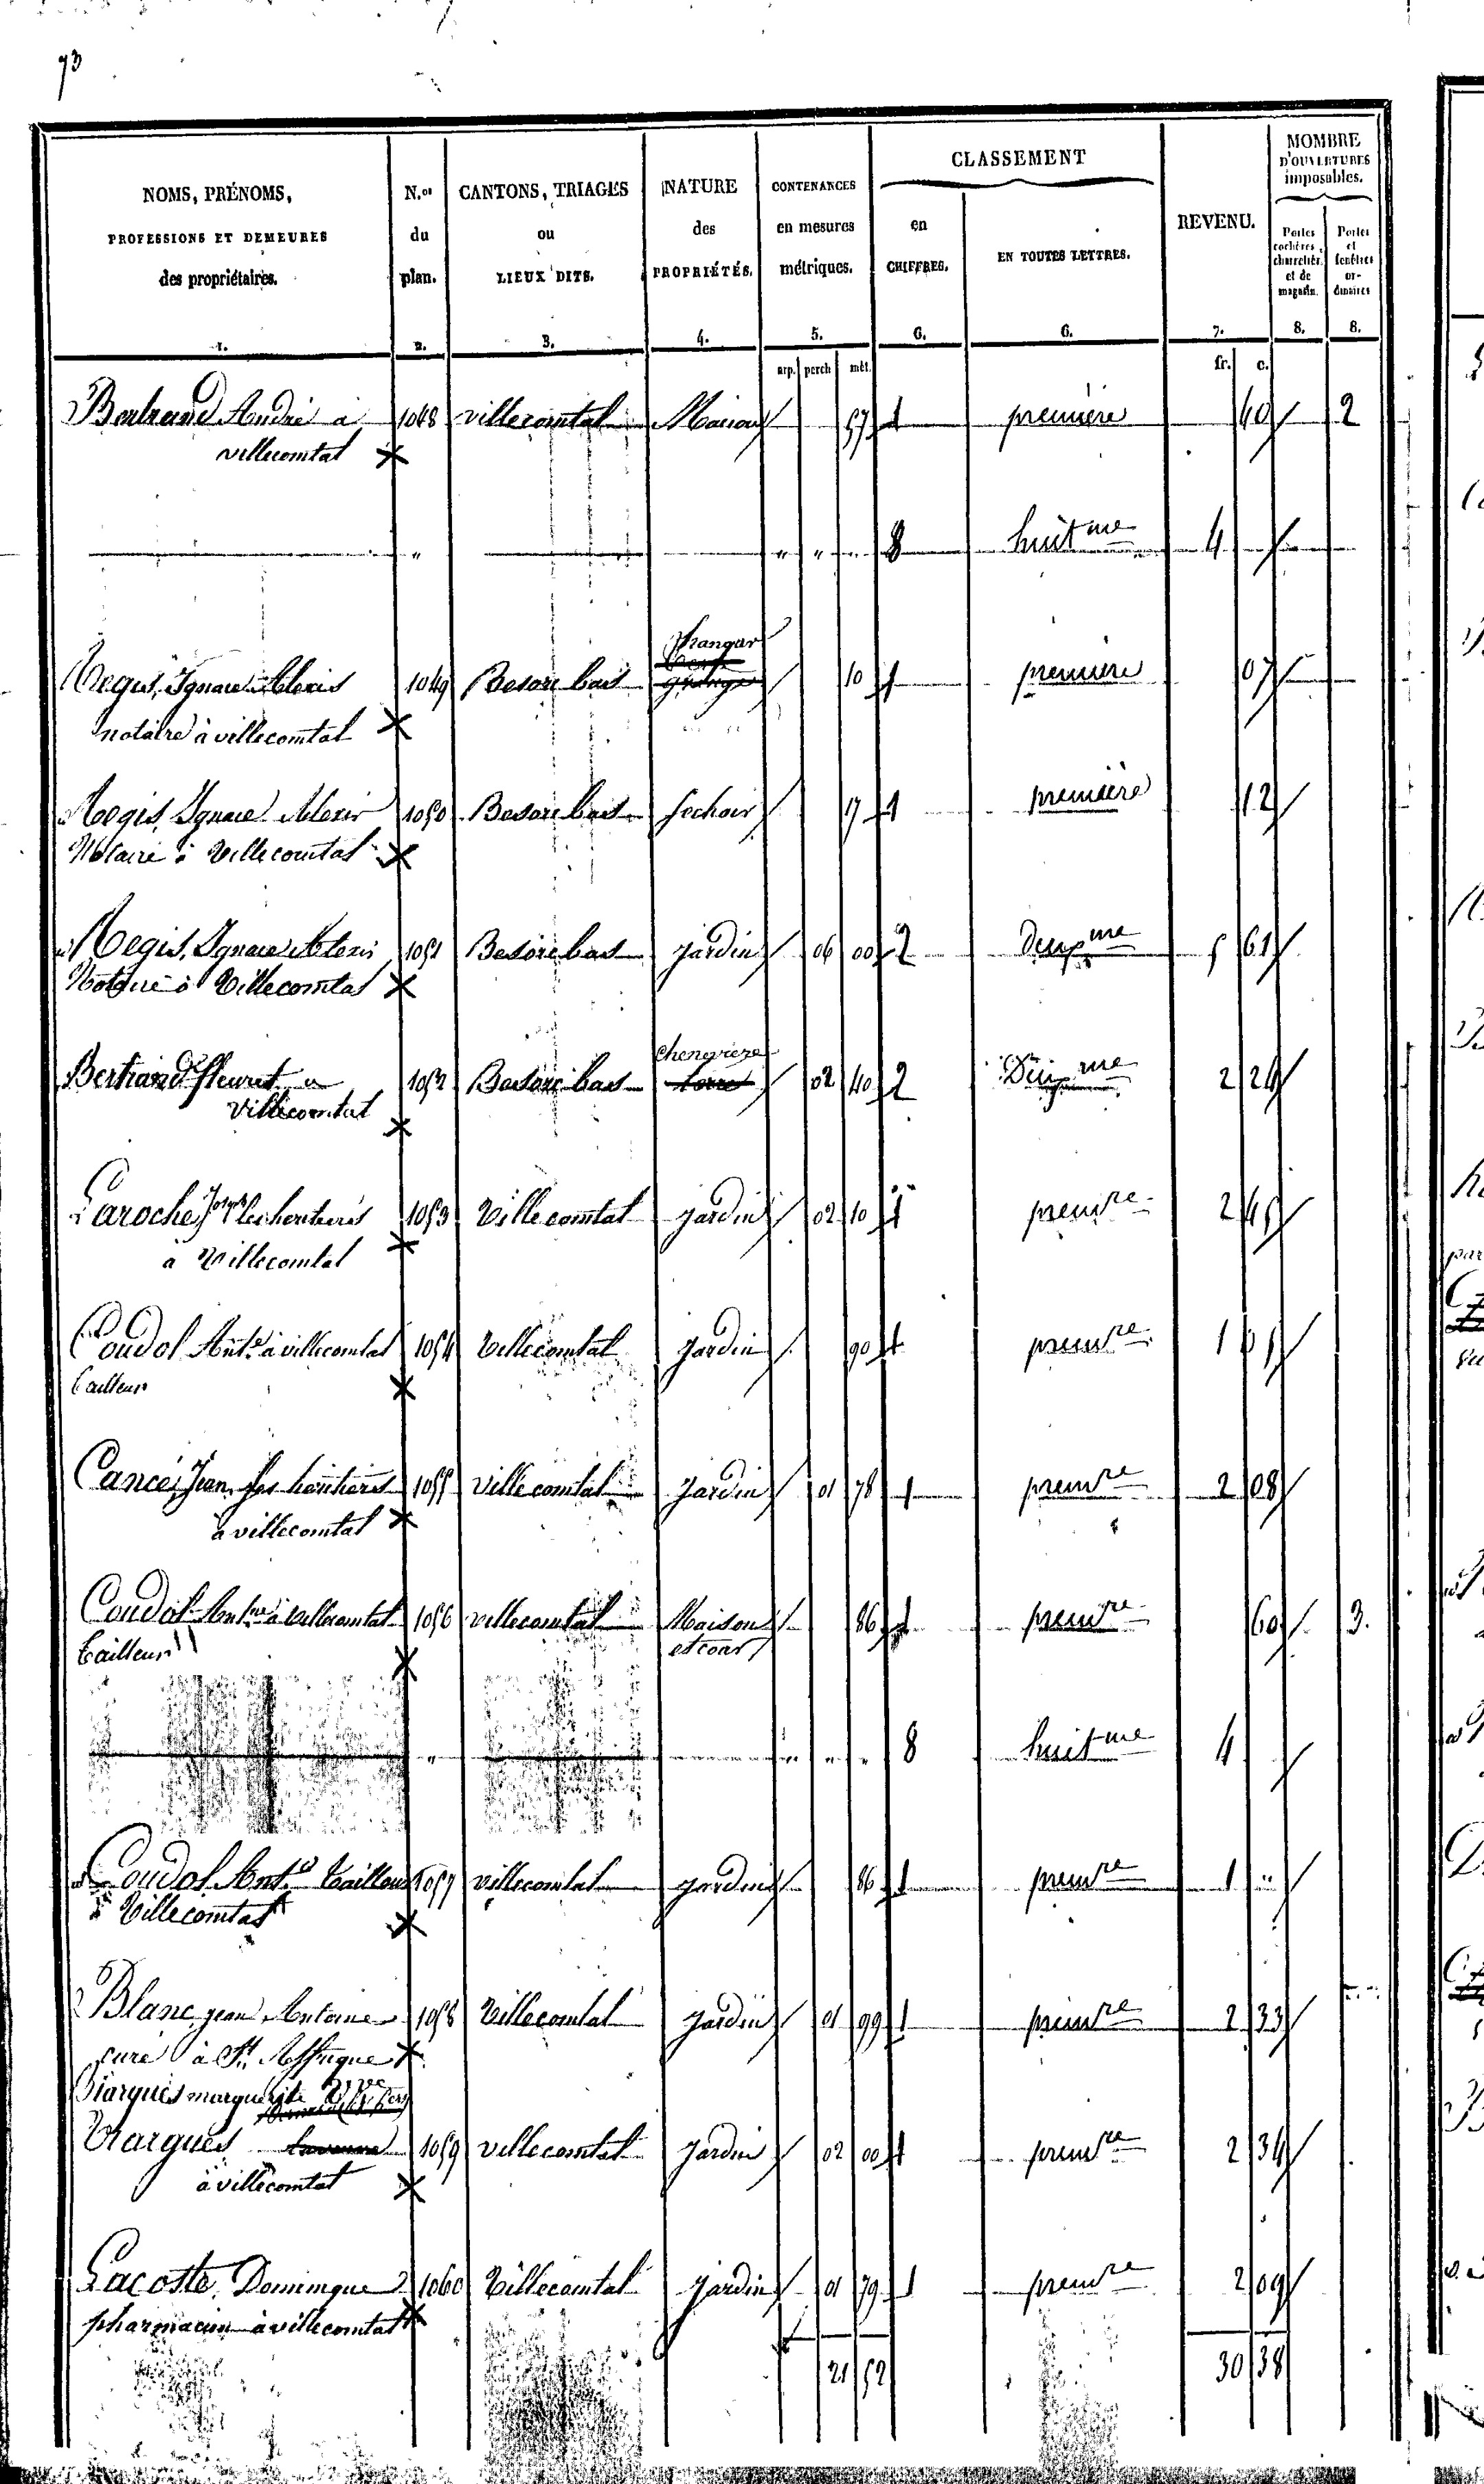 73
NOMS, PRÉNOMS, PROFESSIONS ET DEMEURES des propriétaires. 1.
N.os du plan. 2.
CANTONS, TRIAGES ou LIEUX DITS. 3.
NATURE des PROPRIÉTÉS. 4.
CONTENANCES en mesures métriques. 5.
CLASSEMENT
en CHIFFRES. 6.
EN TOUTES LETTRES. 6.
REVENU. 7.
MOMBRE D'OUVERTURES imposables.
Portes cochères, charretièr. et de magasin. 8.
Portes et fenêtres ordinaires 8.
arp. perch mèt. fr. c.
Bertrand André à 1048 villecomtal Maison 57 1 première 40 2
villecomtal X
" " " " 8 huitme 4
hangar
Regis, Ignace Alexis 1049 Besore bas grange 10 1 première 07
notaire à villecomtal X
Regis, Ignace Alexis 1050 Besore bas sechoir 17 1 première 12
Notaire à Villecomtal X
Regis, Ignace Alexis 1051 Besore bas jardin 06 00 2 Deuxme 5 61
Notaire à Villecomtal X
chenevière
Bertrand fleuret a 1052 Besore bas terre 02 40 2 Deuxme 2 24
Villecomtal X
Laroche Joseph les heritiers 1053 Villecomtal jardin 02 10 1 premre 2 45
a Villecomtal X
Coudol Ante à villecomtal 1054 Villecomtal jardin 90 1 premre 1 05
tailleur X
Cance Jean les heritiers 1055 villecomtal jardin 01 78 1 premre 2 08
à villecomtal X
Coudol Antne à villecomtal 1056 villecomtal Maison 86 1 premre 60 3.
tailleur X et cour
" " " " 8 huitme 4
Coudol Ante tailleur 1057 villecomtal jardin 86 1 premre 1 "
à Villecomtal X
Blanc jean Antoine 1058 Villecomtal jardin 01 99 1 premre 2 33
curé à St Affrique X
marguerite
Viargues 1059 villecomtal jardin 02 00 1 premre 2 34
à villecomtal X
Lacoste Dominique 1060 Villecomtal jardin 01 79 1 premre 2 09
pharmacien à villecomtal X
21 52 30 38